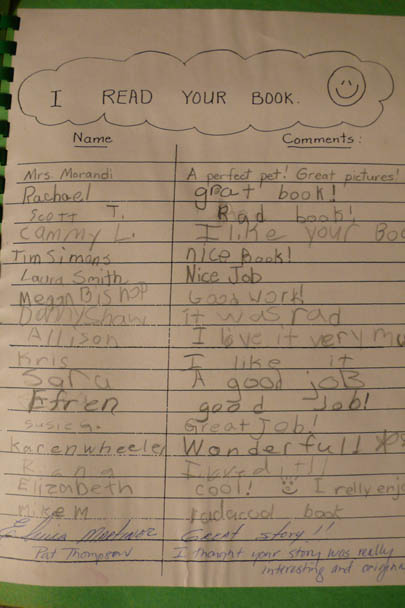 I READ YOUR BOOK.
Name Comments:
Mrs. Morandi A perfect pet! Great pictures!
Rachael grat book!
Scott T. Rad book!
Cammy L. I like your Boo
Tim Simons nice Book!
Laura Smith Nice Job
Megan Bishop Good work!
Danny Shaw it was rad
Allison I love it very mu
Kris I like it
Sara A good joB
Efren good Job!
Susie G. Great Job!
Karen wheeler Wonderfull
I loved it!!
Elizabeth cool! I relly enj
Mike M radacool book
Martinez Great story!!
Pat Thompson I thought your story was really
interesting and origina